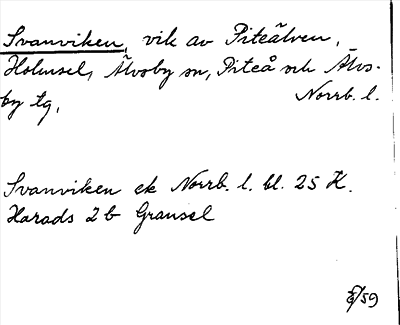 Svanviken, vik av Piteälven,
Holmsel, Älvsby sn, Piteå och Älvs-
by tg, Norrb. l.
Svanviken ek Norrb. l. bl. 25 K.
Harads 2 b Gransel
/59